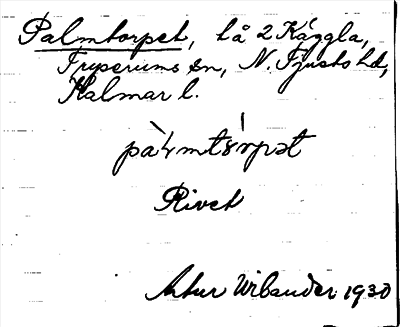 Palmtorpet, lå 2 Kåggla,
Fryserums sn, N. Tjusts hd,
Kalmar l.
Rivet
Artur Wilbander 1930